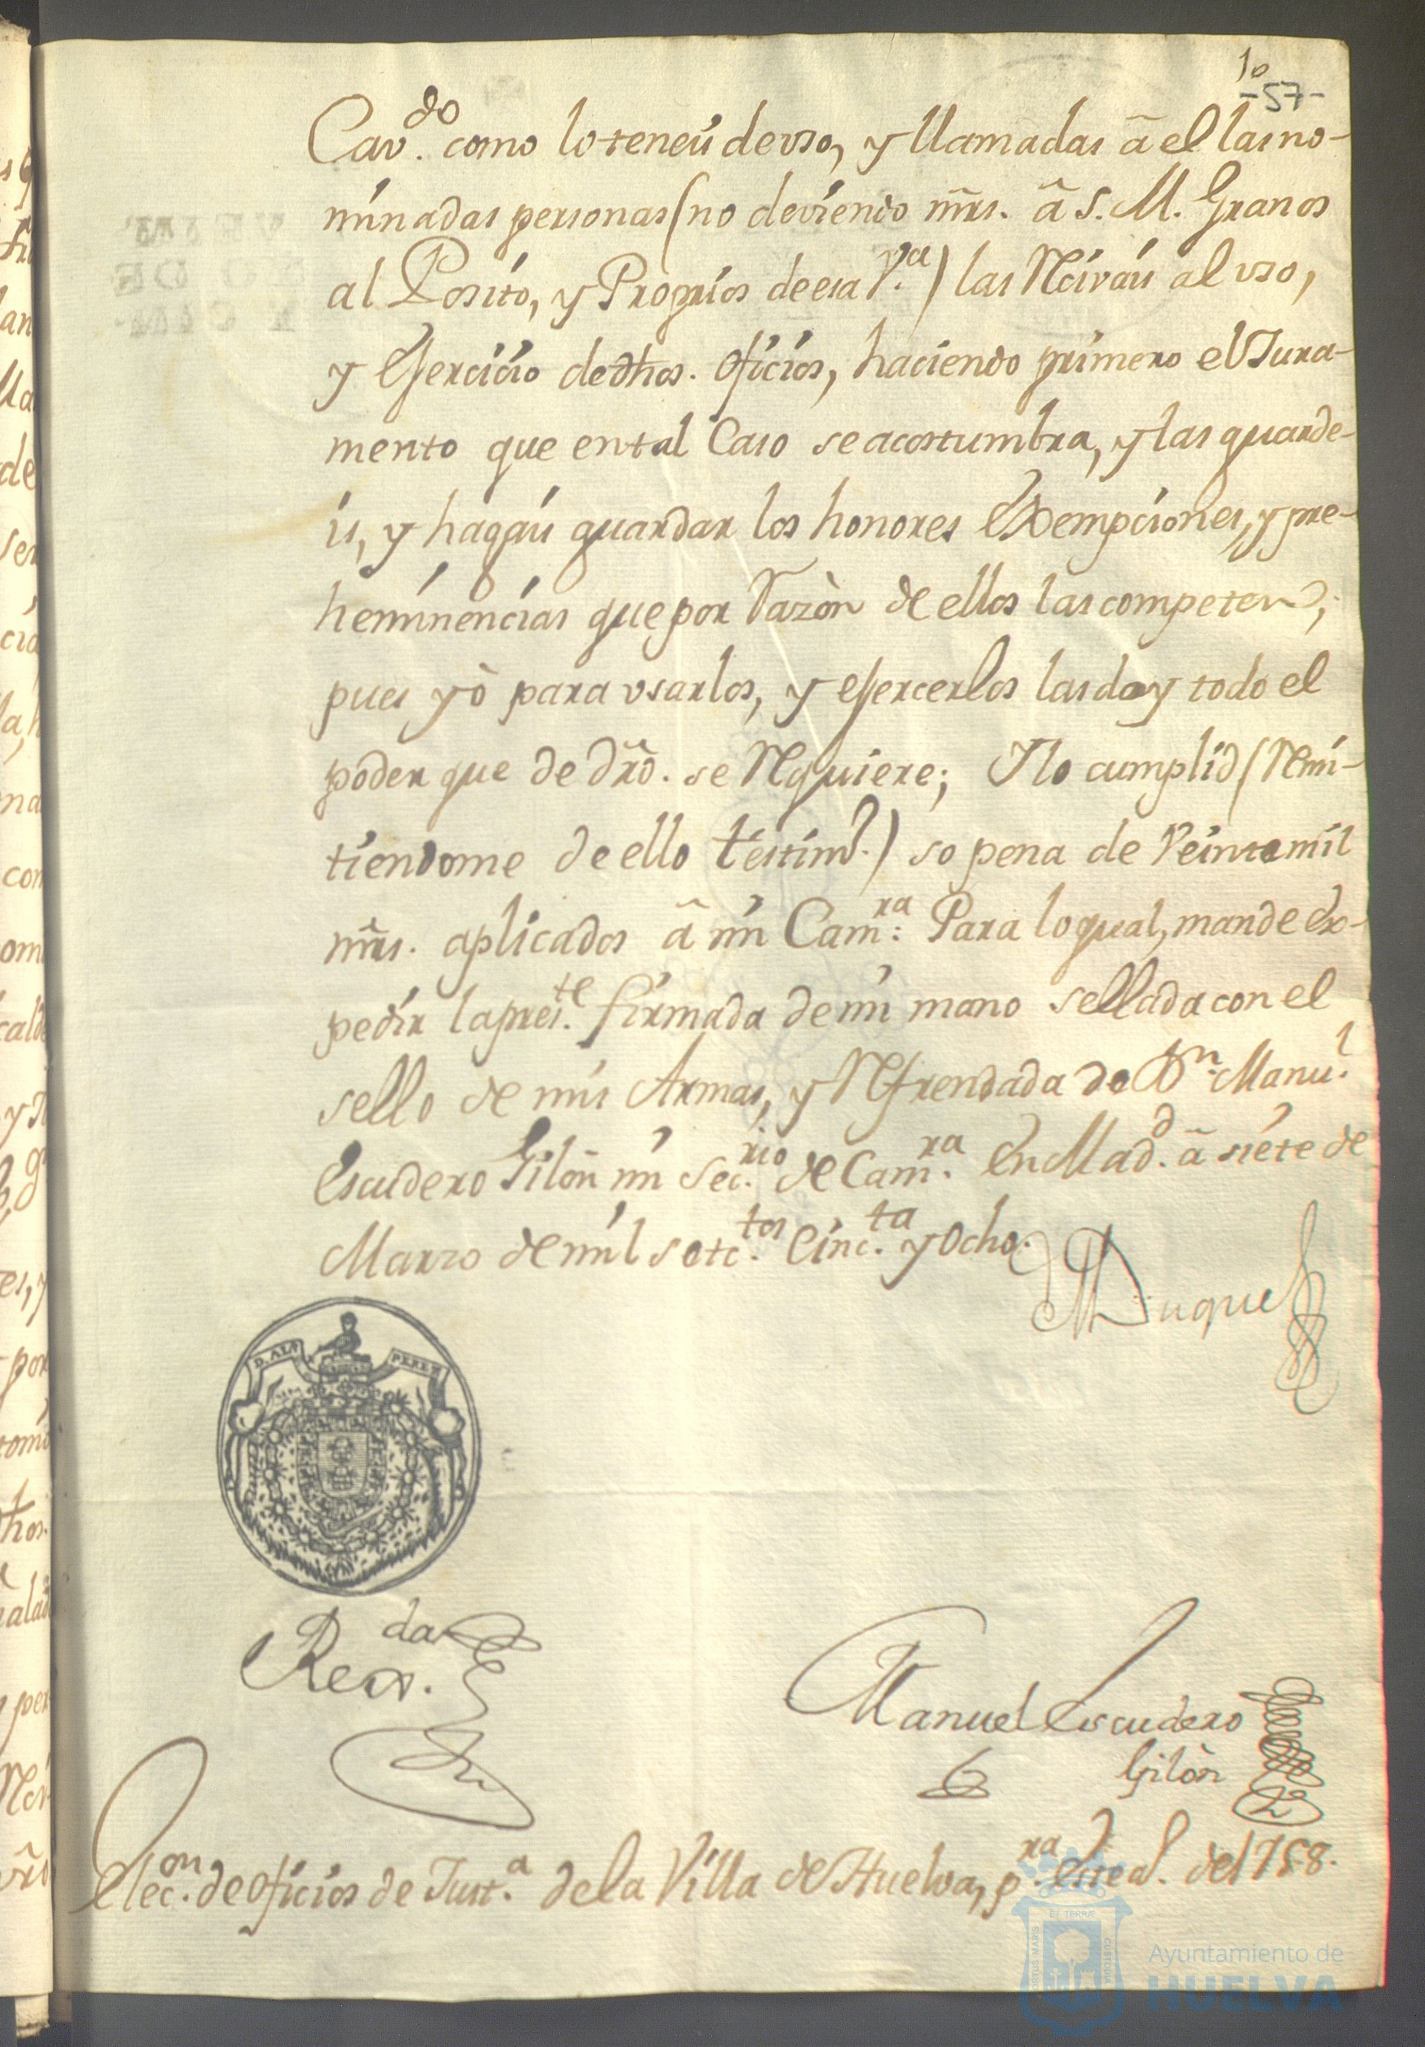 10
-57-
Cav.do como lo teneis de vso, y llamadas â el las no-
minadas personas (no deviendo mrs. â S. M. Granos
al Posito, y Proprios de esa V.a) las Recivais al vso,
y Exercicio de dhos. oficios, haciendo primero el Jura-
mento que en tal Caso se acostumbra, y las guarde-
is, y hagais guardar los honores Exempciones, y pre-
heminencias que por Razòn de ellos las competen;
pues yò para vsarlos, y exercerlos las doy todo el
poder que de dro. se Requiere; Ylo cumplid (Remi-
tiendome de ello testimo.) so pena de Veinte mil
mrs. aplicados â mi Cam.ra Para lo qual, mande ex-
pedir la pres.te firmada de mi mano sellada con el
sello de mis Armas, y Refrendada de Dn. Manu.l
Escudero Gilòn mi Sec.rio de Cam.ra En Mad.d â siete de
Marzo de mil setc.tos Cinc.ta y Ocho.
El Duque
D. ALO PEREZ
Rex.da
Manuel Escudero
Gilòn
Elec.on de oficios de Just.a de la Villa de Huelva, p.ra este a.o de 1758.
Ayuntamiento de
HUELVA